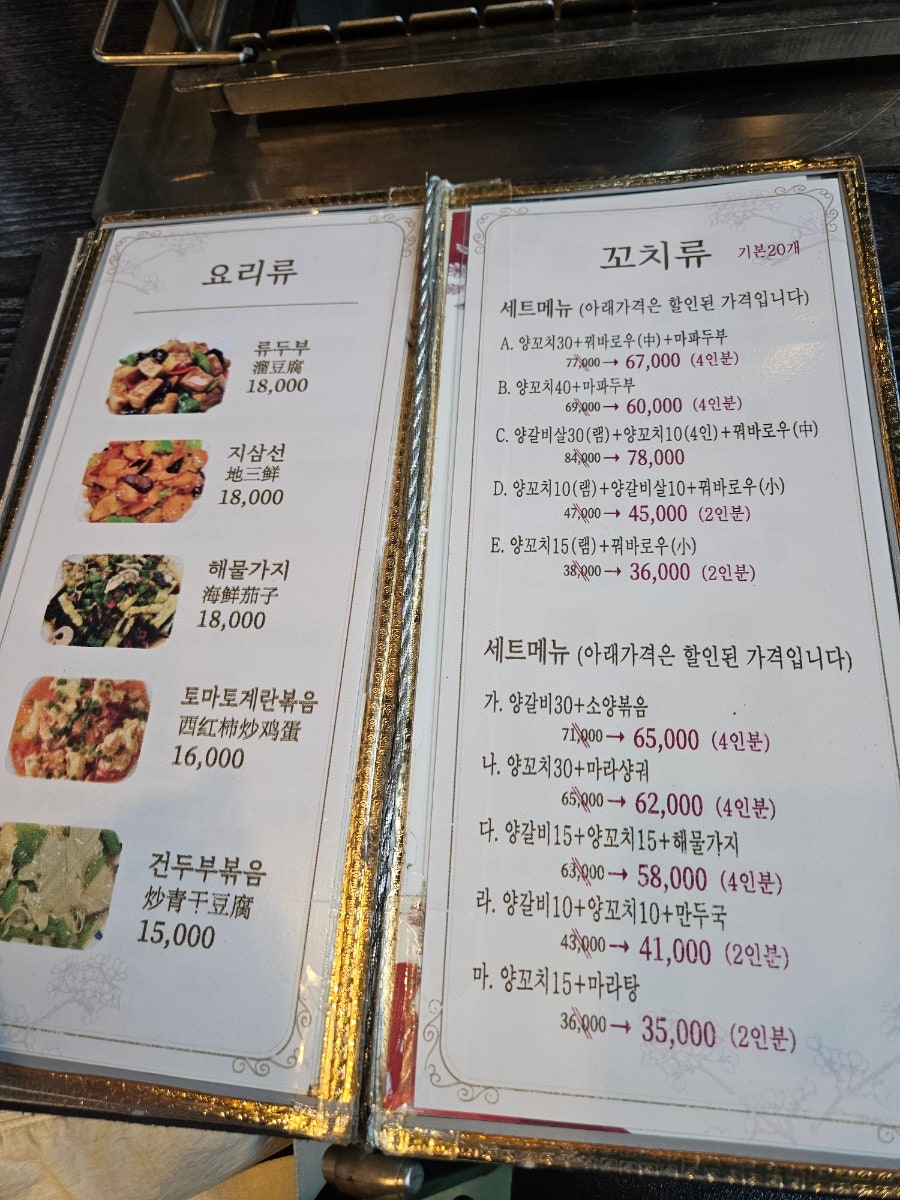 요리류
류두부
溜豆腐
18,000
지삼선
地三鲜
18,000
해물가지
海鲜茄子
18,000
토마토계란볶음
西红柿炒鸡蛋
16,000
건두부볶음
炒青干豆腐
15,000
꼬치류 기본20개
세트메뉴 (아래가격은 할인된 가격입니다)
A. 양꼬치30+꿔바로우(中)+마파두부
77,000→ 67,000 (4인분)
B. 양꼬치40+마파두부
69,000→ 60,000 (4인분)
C. 양갈비살30(램)+양꼬치10(4인)+꿔바로우(中)
84,000→ 78,000
D. 양꼬치10(램)+양갈비살10+꿔바로우(小)
47,000→ 45,000 (2인분)
E. 양꼬치15(램)+꿔바로우(小)
38,000→ 36,000 (2인분)
세트메뉴 (아래가격은 할인된 가격입니다)
가. 양갈비30+소양볶음
71,000→ 65,000 (4인분)
나. 양꼬치30+마라샹궈
65,000→ 62,000 (4인분)
다. 양갈비15+양꼬치15+해물가지
63,000→ 58,000 (4인분)
라. 양갈비10+양꼬치10+만두국
43,000→ 41,000 (2인분)
마. 양꼬치15+마라탕
36,000→ 35,000 (2인분)